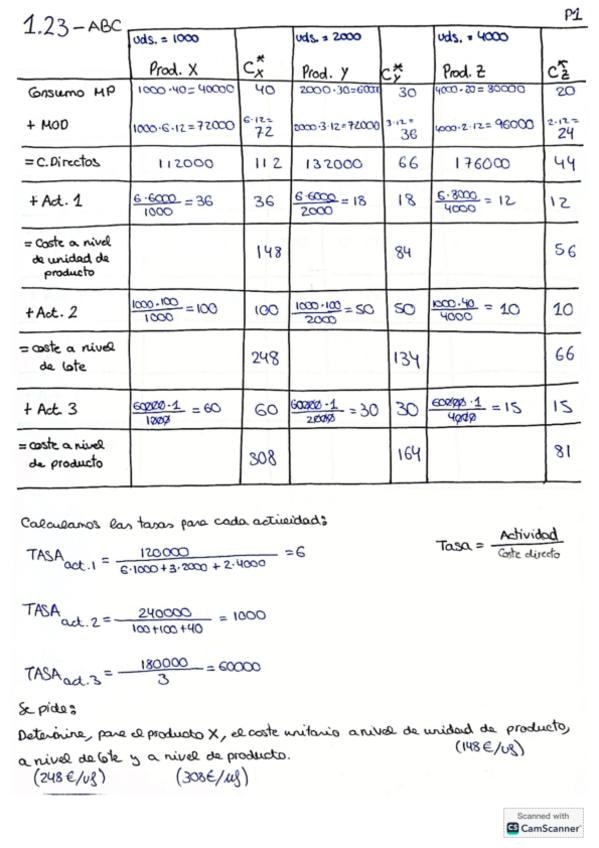 P1
1.23 - ABC
uds. = 1000 uds. = 2000 uds. = 4000
Prod. X Cx* Prod. Y Cy* Prod. Z Cz*
Consumo MP 1000·40=40000 40 2000·30=60000 30 4000·20=80000 20
+ MOD 1000·6·12=72000 6·12= 72 2000·3·12=72000 3·12= 36 4000·2·12=96000 2·12= 24
= C. Directos 112000 112 132000 66 176000 44
+ Act. 1 6·6000/1000 = 36 36 6·6000/2000 = 18 18 6·8000/4000 = 12 12
= Coste a nivel
de unidad de 148 84 56
producto
+ Act. 2 1000·100/1000 = 100 100 1000·100/2000 = 50 50 1000·40/4000 = 10 10
= coste a nivel
de lote 248 134 66
+ Act. 3 60000·1/1000 = 60 60 60000·1/2000 = 30 30 60000·1/4000 = 15 15
= coste a nivel
de producto 308 164 81
Calculamos las tasas para cada actividad:
TASA act.1 = 120000/(6·1000+3·2000+2·4000) = 6
Tasa = Actividad/Coste directo
TASA act.2 = 240000/(100+100+40) = 1000
TASA act.3 = 180000/3 = 60000
Se pide:
Determine, para el producto X, el coste unitario a nivel de unidad de producto,
(148€/ug)
a nivel de lote y a nivel de producto.
(248€/ug) (308€/ug)
Scanned with
CS CamScanner